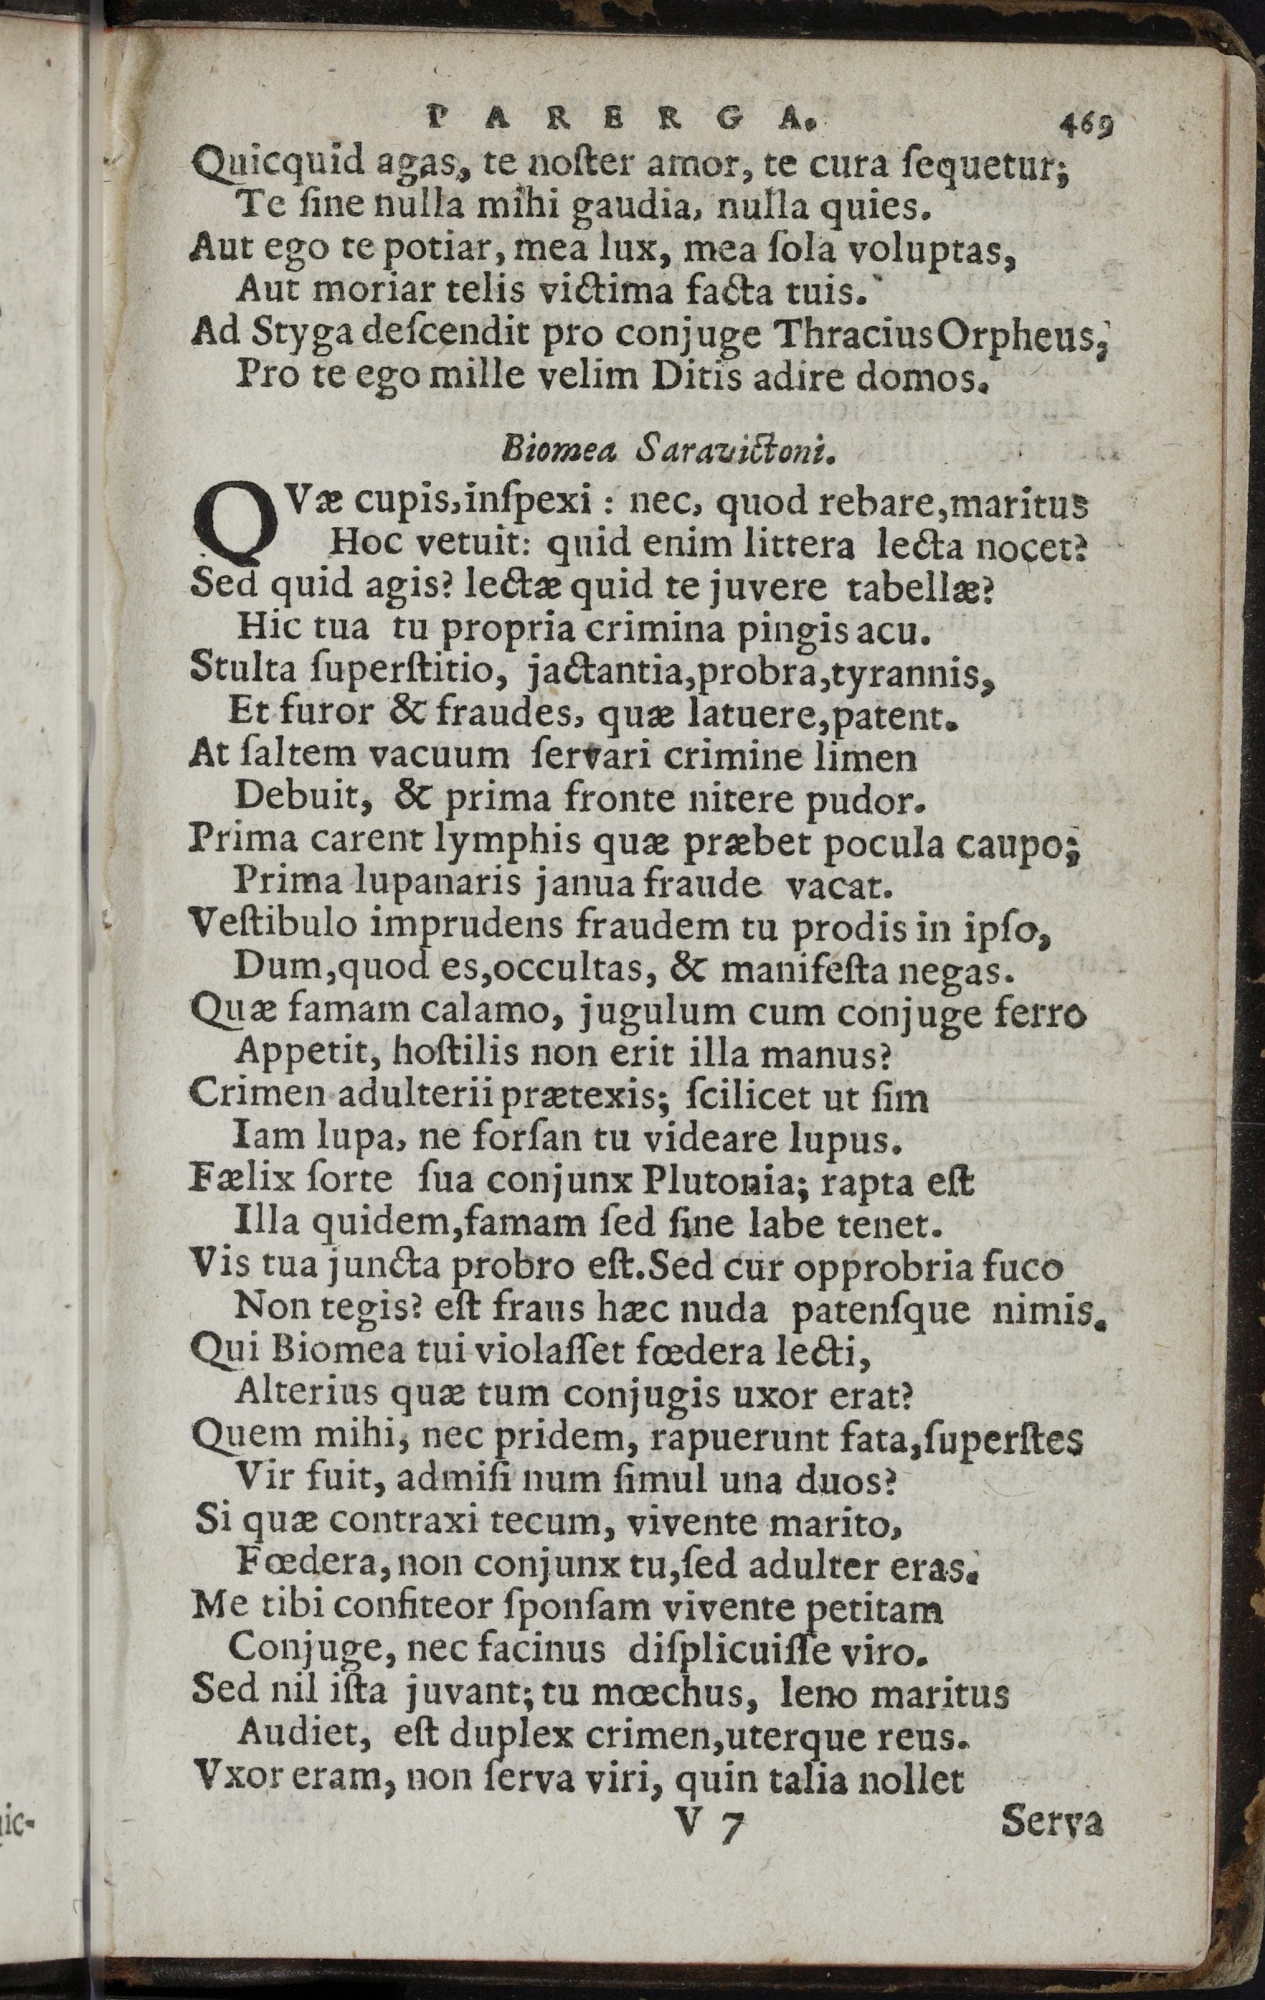 PARERGA. 469
Quicquid agas, te noſter amor, te cura ſequetur;
Te ſine nulla mihi gaudia, nulla quies.
Aut ego te potiar, mea lux, mea ſola voluptas,
Aut moriar telis victima facta tuis.
Ad Styga deſcendit pro conjuge Thracius Orpheus;
Pro te ego mille velim Ditis adire domos.
Biomea Saravictoni.
QVæ cupis, inſpexi: nec, quod rebare, maritus
Hoc vetuit: quid enim littera lecta nocet?
Sed quid agis? lectæ quid te juvere tabellæ?
Hic tua tu propria crimina pingis acu.
Stulta ſuperſtitio, jactantia, probra, tyrannis,
Et furor & fraudes, quæ latuere, patent.
At ſaltem vacuum ſervari crimine limen
Debuit, & prima fronte nitere pudor.
Prima carent lymphis quæ præbet pocula caupo;
Prima lupanaris janua fraude vacat.
Veſtibulo imprudens fraudem tu prodis in ipſo,
Dum, quod es, occultas, & manifeſta negas.
Quæ famam calamo, jugulum cum conjuge ferro
Appetit, hoſtilis non erit illa manus?
Crimen adulterii prætexis; ſcilicet ut ſim
Iam lupa, ne forſan tu videare lupus.
Fælix ſorte ſua conjunx Plutonia; rapta eſt
Illa quidem, famam ſed ſine labe tenet.
Vis tua juncta probro eſt. Sed cur opprobria fuco
Non tegis? eſt fraus hæc nuda patenſque nimis.
Qui Biomea tui violaſſet fœdera lecti,
Alterius quæ tum conjugis uxor erat?
Quem mihi, nec pridem, rapuerunt fata, ſuperſtes
Vir fuit, admiſi num ſimul una duos?
Si quæ contraxi tecum, vivente marito,
Fœdera, non conjunx tu, ſed adulter eras.
Me tibi confiteor ſponſam vivente petitam
Conjuge, nec facinus diſplicuiſſe viro.
Sed nil iſta juvant; tu mœchus, leno maritus
Audiet, eſt duplex crimen, uterque reus.
Vxor eram, non ſerva viri, quin talia nollet
V 7 Serva
ic-